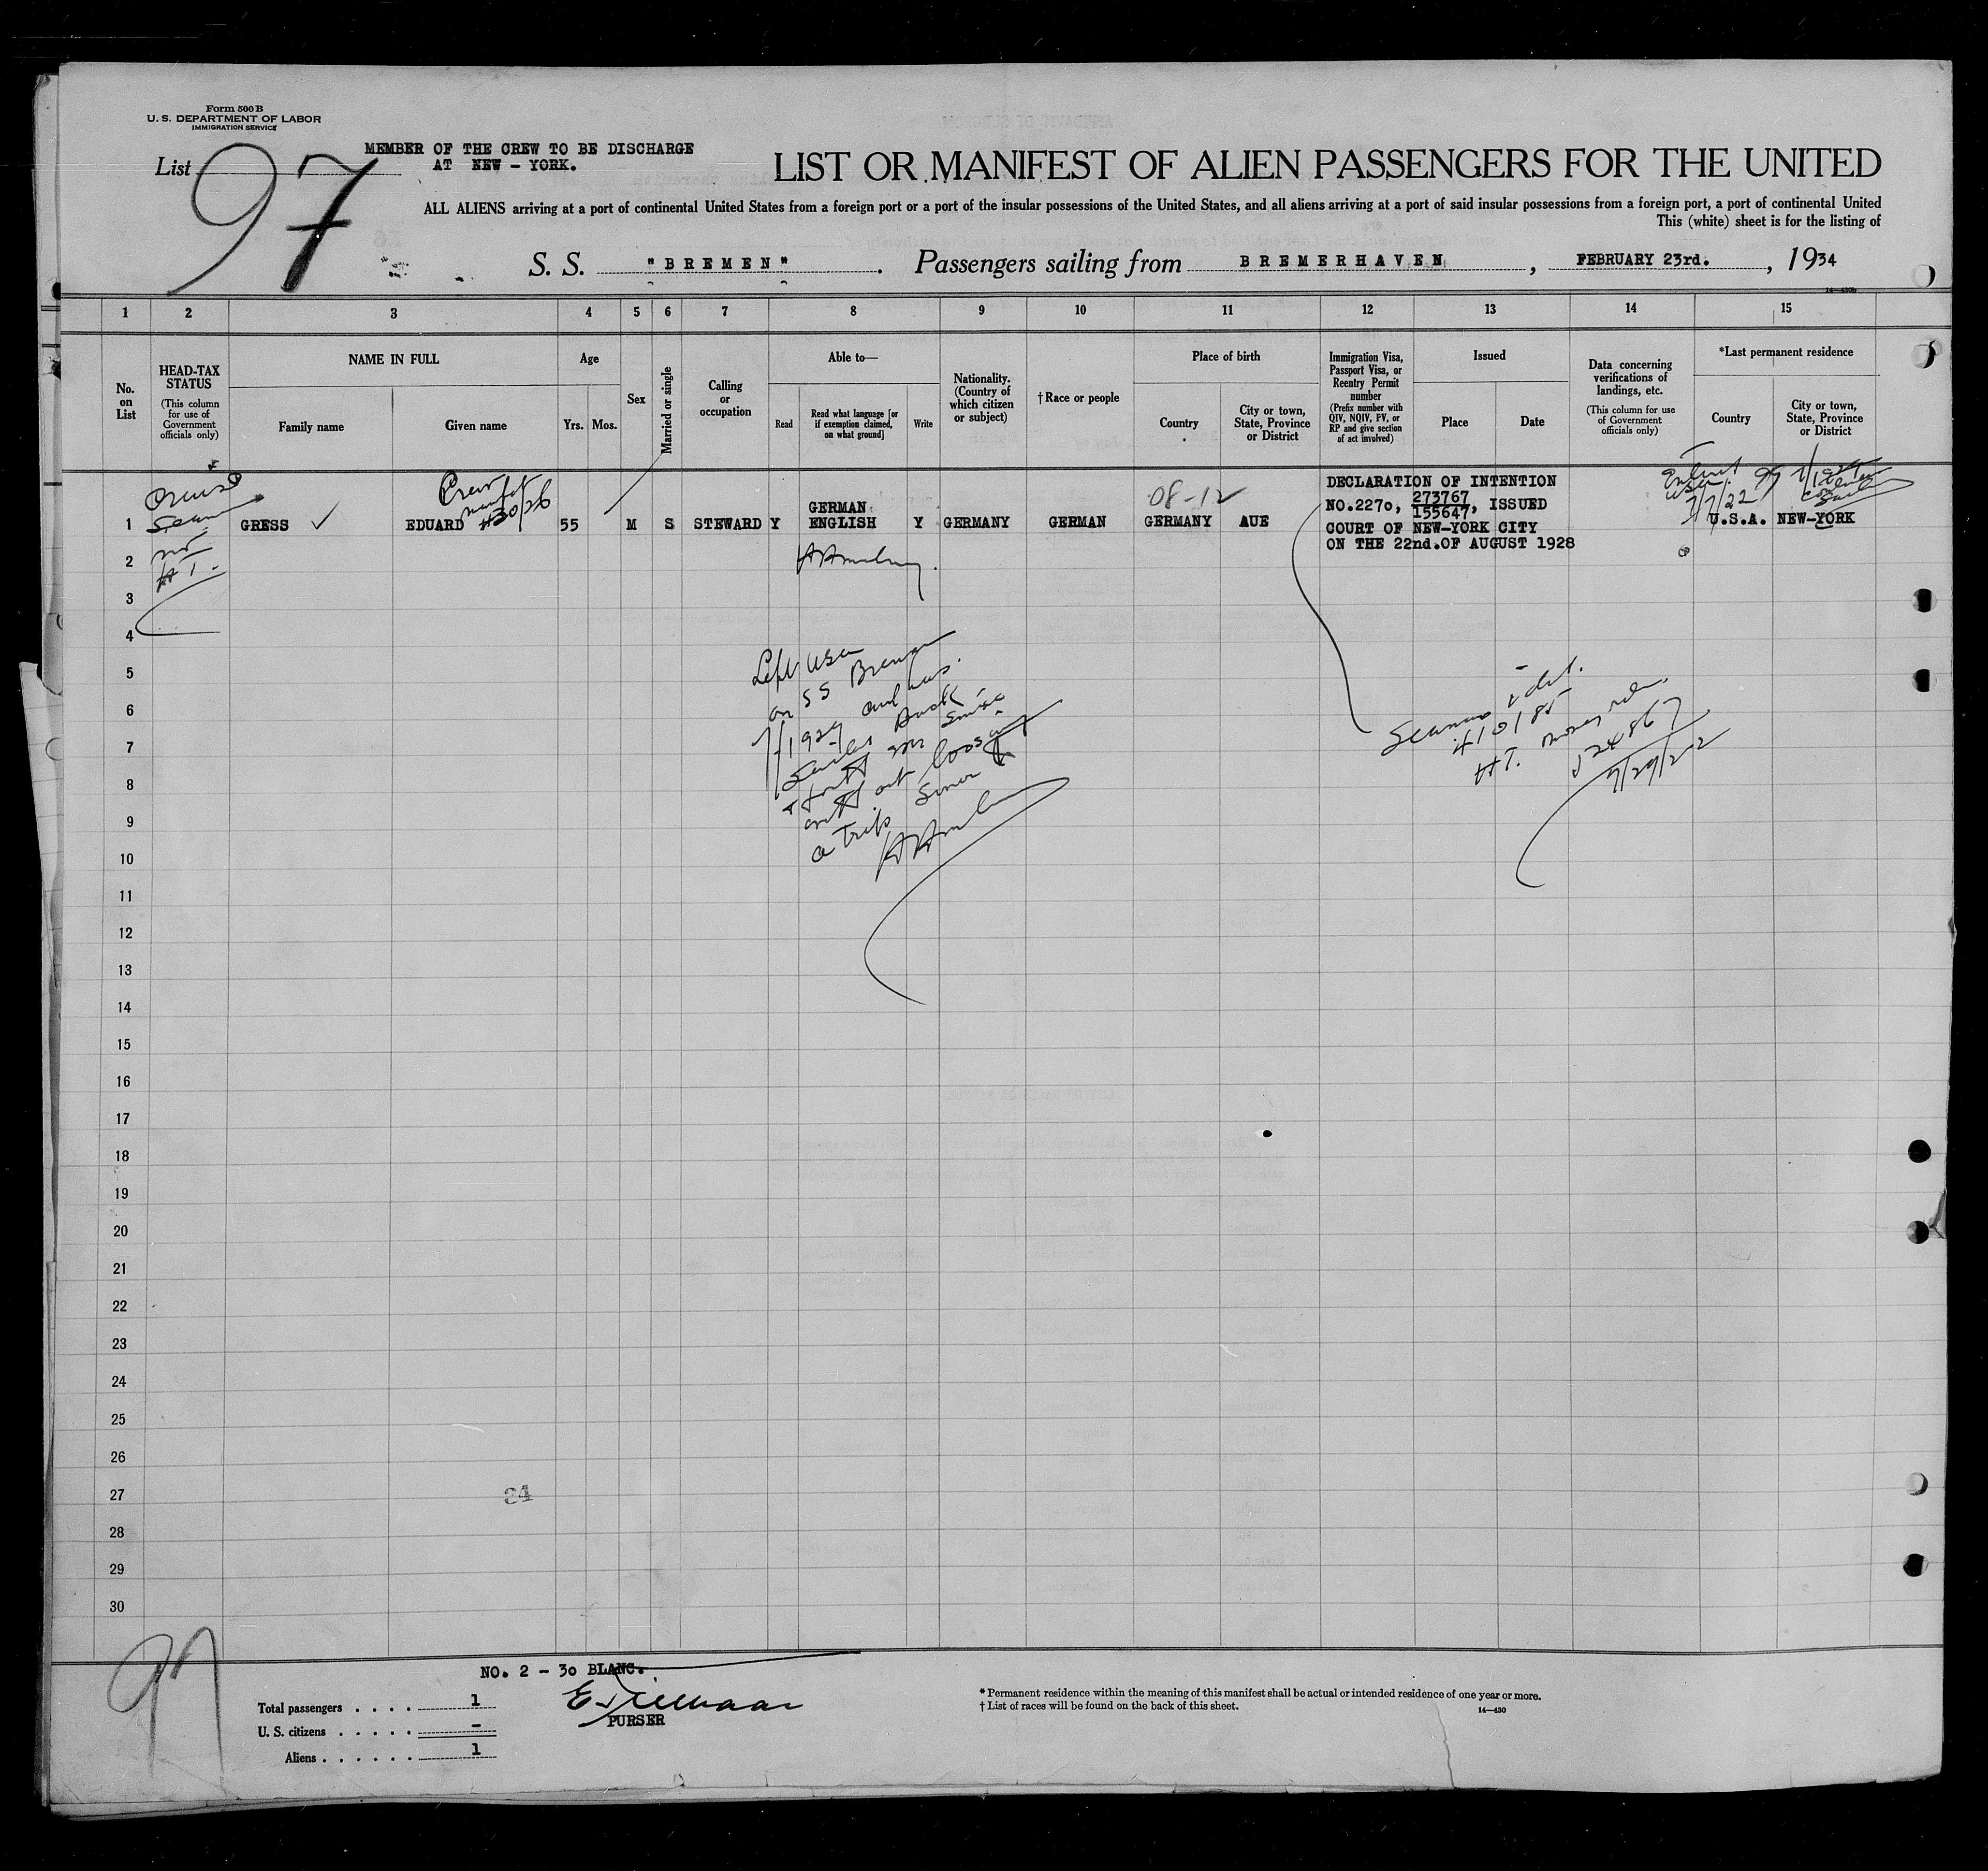 Form 500 B
U. S. DEPARTMENT OF LABOR
IMMIGRATION SERVICE
List 97
MEMBER OF THE CREW TO BE DISCHARGE
AT NEW - YORK.
LIST OR MANIFEST OF ALIEN PASSENGERS FOR THE UNITED
ALL ALIENS arriving at a port of continental United States from a foreign port or a port of the insular possessions of the United States, and all aliens arriving at a port of said insular possessions from a foreign port, a port of continental United
This (white) sheet is for the listing of
S. S. "BREMEN". Passengers sailing from BREMERHAVEN, FEBRUARY 23rd., 1934
14—430b
1 2 3 4 5 6 7 8 9 10 11 12 13 14 15
No. on List
HEAD-TAX STATUS
(This column for use of Government officials only)
NAME IN FULL
Family name
Given name
Age
Yrs. Mos.
Sex
Married or single
Calling or occupation
Able to—
Read
Read what language [or if exemption claimed, on what ground]
Write
Nationality. (Country of which citizen or subject)
† Race or people
Place of birth
Country
City or town, State, Province or District
Immigration Visa, Passport Visa, or Reentry Permit number
(Prefix number with QIV, NQIV, PV, or RP and give section of act involved)
Issued
Place
Date
Data concerning verifications of landings, etc.
(This column for use of Government officials only)
*Last permanent residence
Country
City or town, State, Province or District
08-12
1 GRESS EDUARD 55 M S STEWARD Y GERMAN ENGLISH Y GERMANY GERMAN GERMANY AUE
DECLARATION OF INTENTION
NO.2270, 273767/155647, ISSUED
COURT OF NEW-YORK CITY
ON THE 22nd.OF AUGUST 1928
U.S.A. NEW-YORK
7/7/22
Left USA
on SS Bremen
1929 and has
back
a trip since
2
3
4
5
6
7
8
9
10
11
12
13
14
15
16
17
18
19
20
21
22
23
24
25
26
27
28
29
30
34
97
NO. 2 - 30 BLANC.
PURSER
Total passengers . . . . 1
U. S. citizens . . . . . –
Aliens . . . . . . 1
* Permanent residence within the meaning of this manifest shall be actual or intended residence of one year or more.
† List of races will be found on the back of this sheet.
14—430